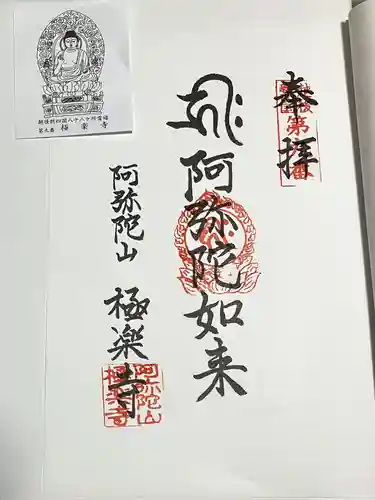 奉拝
阿弥陀如来
阿弥陀山 極楽寺
阿弥陀山
極楽寺
四国八十八ヶ所霊場
極楽寺